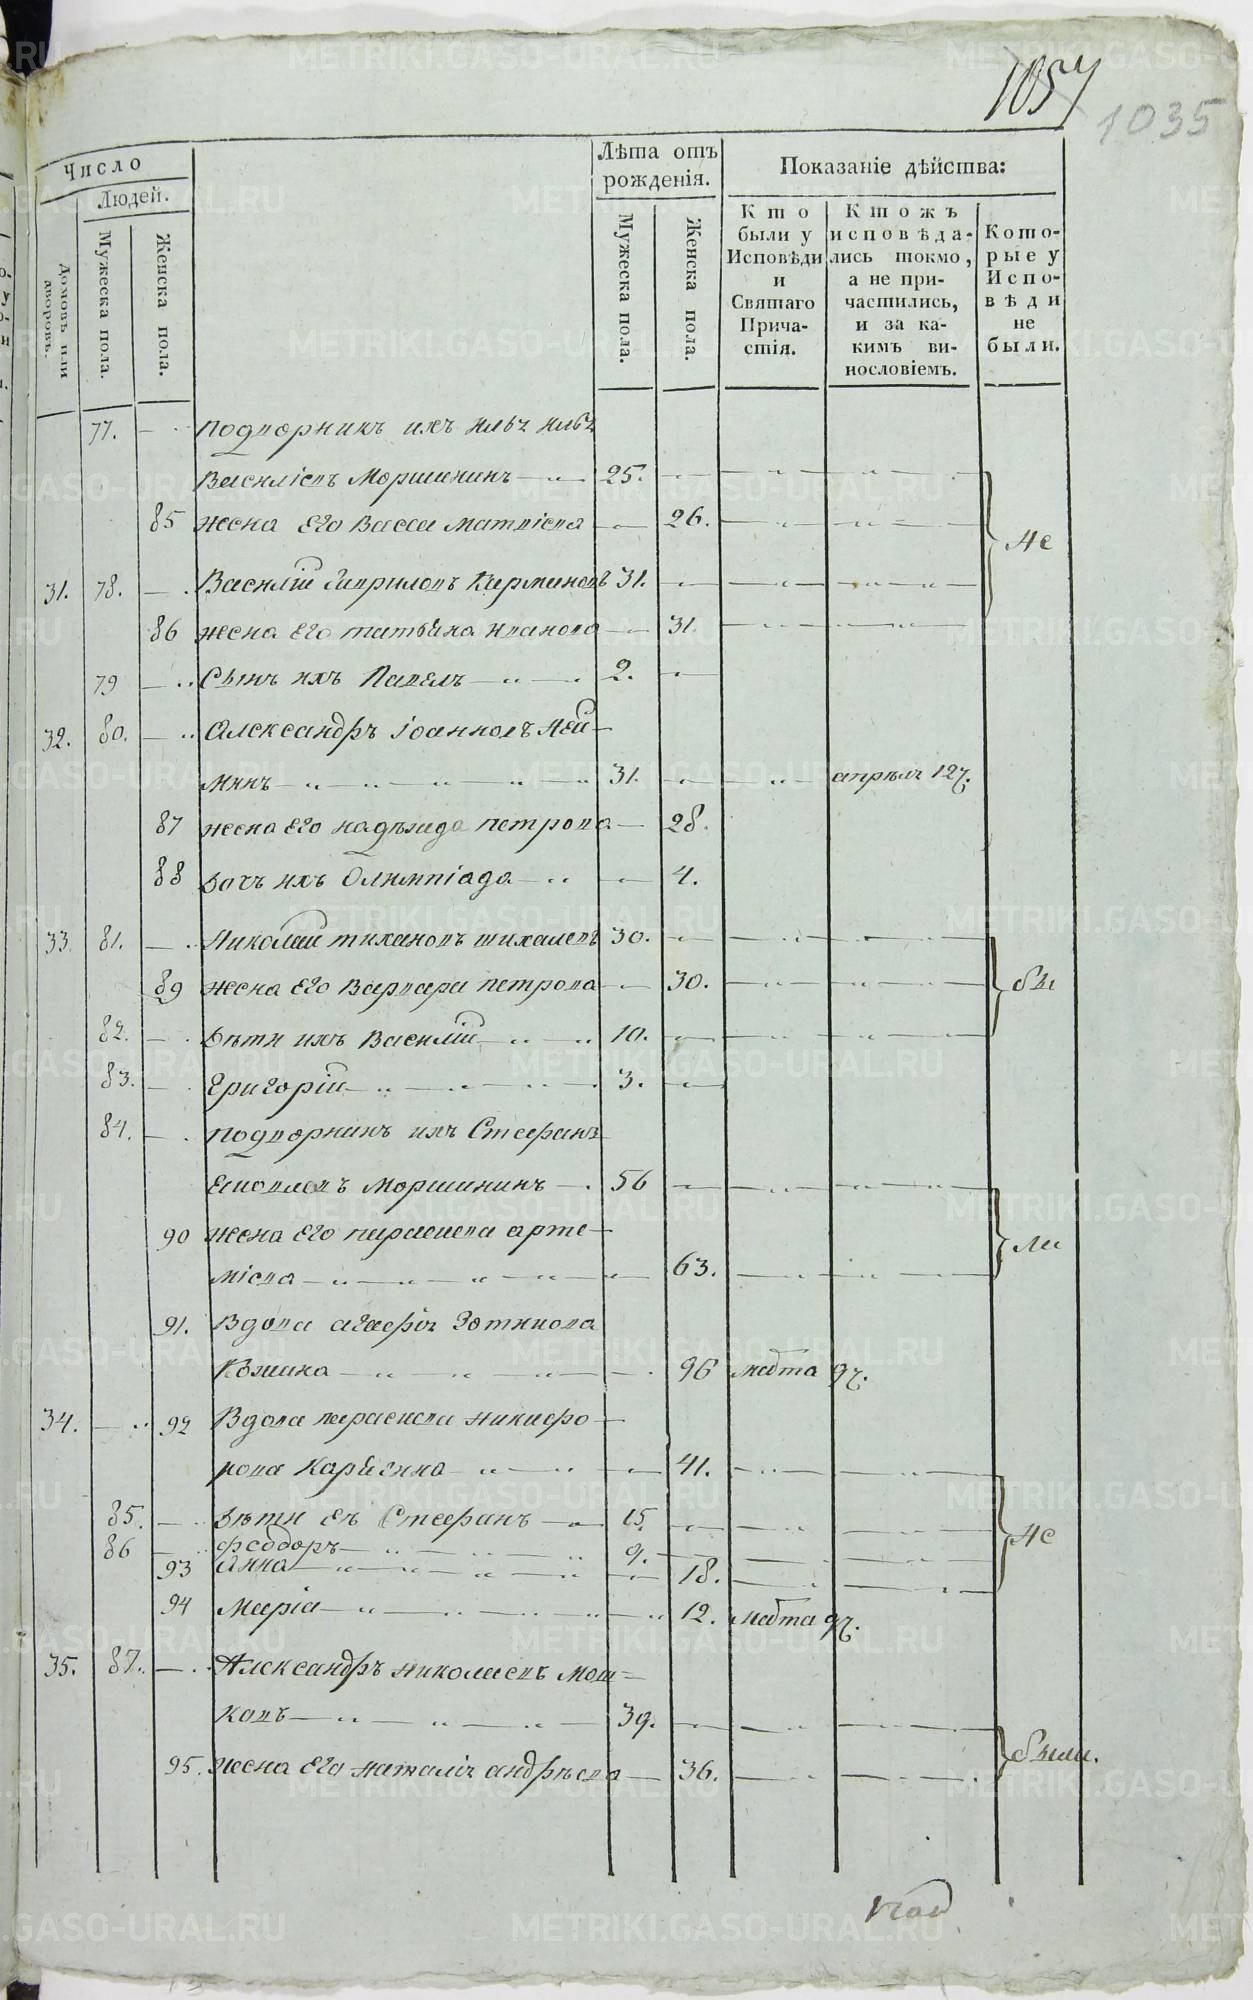 1057
1035
Число
Людей.
Домовъ или дворовъ.
Мужеска пола.
Женска пола.
Лѣта отъ рожденія.
Мужеска пола.
Женска пола.
Показаніе дѣйства:
Кто были у Исповѣди и Святаго Причастія.
Ктожъ исповѣдались токмо, а не причастились, и за какимъ винословіемъ.
Которые у Исповѣди не были.
77. подворникъ ихъ
Василіевъ Моршининъ 25.
85 жена Его Васса матвіева 26.
не
31. 78. Василій Гавриловъ Кирминовъ 31.
86 жена Его татьяна иванова 31.
79 Сынъ ихъ Павелъ 2.
32. 80. Александръ Іоанновъ Ней-
минъ 31. апрѣля 12ч.
87 жена Его надѣжда петрова 28.
88 Дочь ихъ Олимпіада 4.
33 81. Николай тихановъ шихалевъ 30.
89 жена Его Варвара петрова 30. бы
82. Дѣти ихъ Василій 10.
83. Григорій 3.
84. подворникъ ихъ Стефанъ
Моршининъ 56
90 жена Его параскева арте-
міева 63. ли
91. Вдова агафія Зотикова
Кожина 96 марта 9ч.
34. 92 Вдова параскева никифо-
рова 41.
85. Дѣти Ея Стефанъ 15. не
86 феодоръ 9.
93 Анна 18.
94 Марія 12. марта 9ч.
35. 87. Александръ николаевъ Мош=
ковъ 39.
95. жена Его наталія андрѣева 36. были.
METRIKI.GASO-URAL.RU